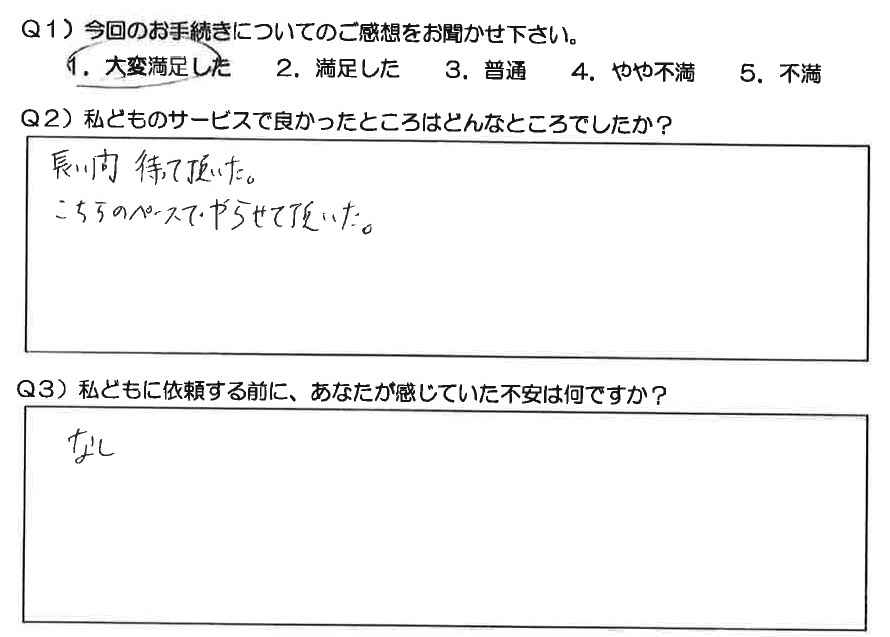 Q1）今回のお手続きについてのご感想をお聞かせ下さい。
1．大変満足した　2．満足した　3．普通　4．やや不満　5．不満
Q2）私どものサービスで良かったところはどんなところでしたか？
長い間 待って頂いた。
こちらのペースでやらせて頂いた。
Q3）私どもに依頼する前に、あなたが感じていた不安は何ですか？
なし